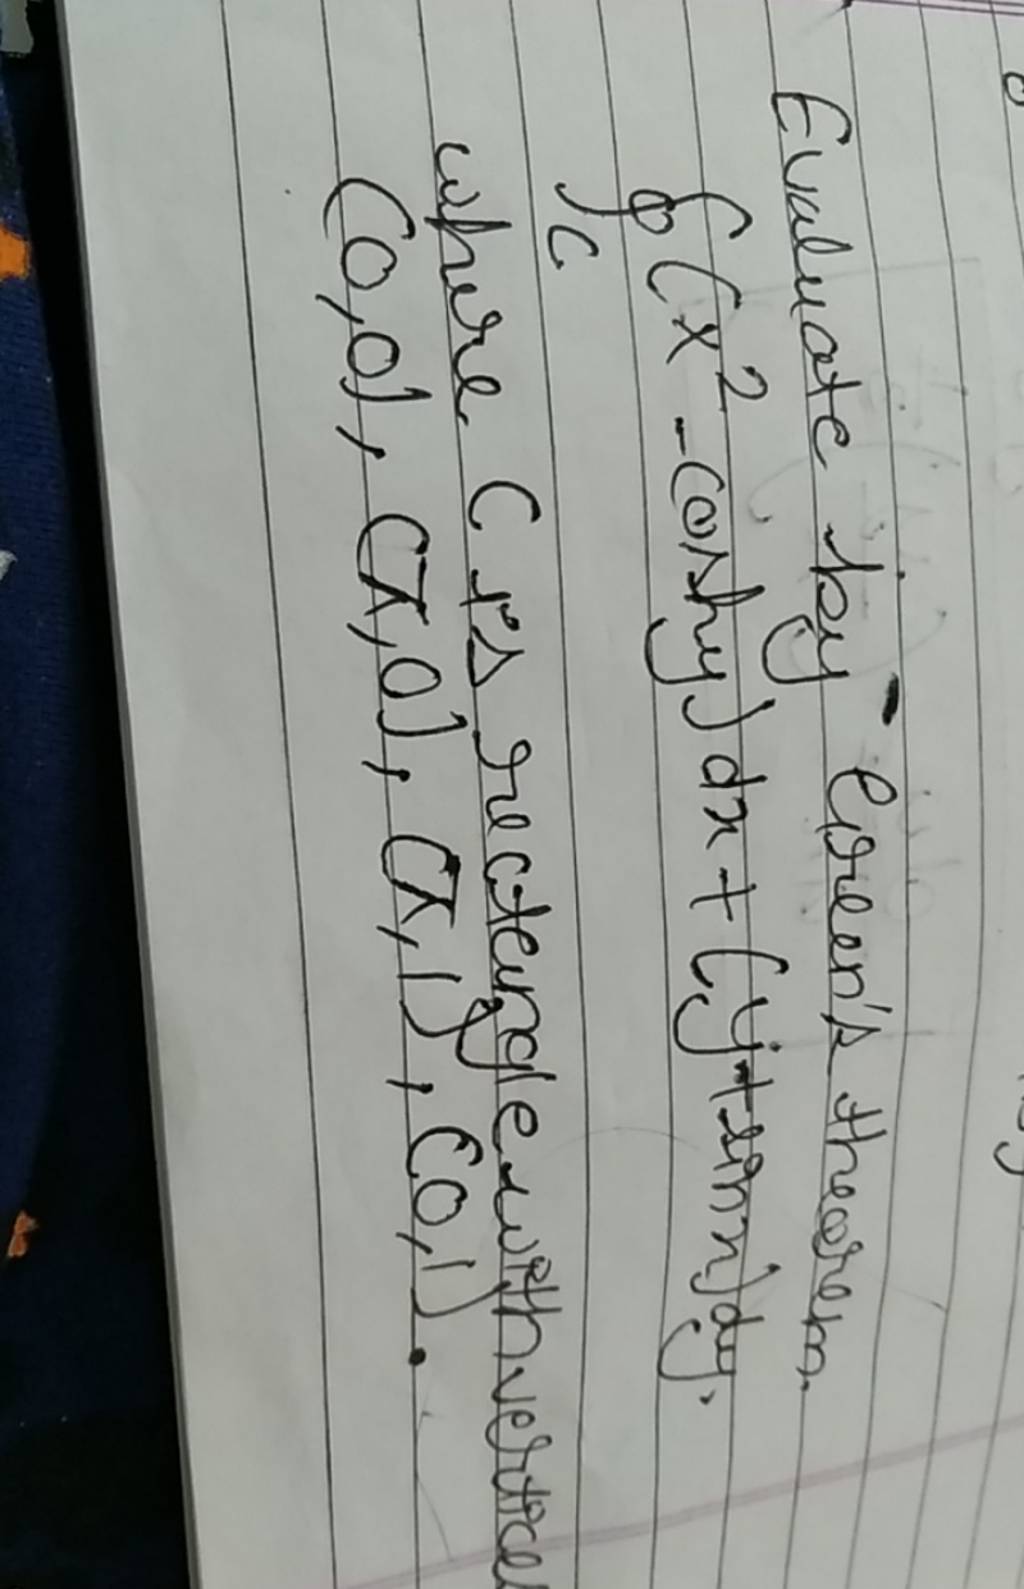 Evaluate by Green's theorem.
∮c (x² - coshy) dx + (y + sinx) dy.
where C is rectangle with vertices
(0,0), (π,0), (π,1), (0,1).